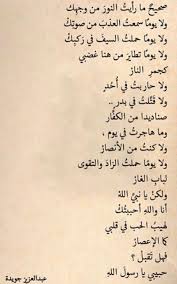 صحيحٌ ما رأيتُ النورَ من وجهِكَ
ولا يومًا سمعتُ العذبَ من صوتِكْ
ولا يومًا حملتُ السيفَ في رَكبِكْ
ولا يومًا تطايرَ من هنا غضبي
كجمرِ النارْ
ولا حاربتُ في أُحُدٍ
ولا قَتَّلتُ في بدرٍ ..
صناديدا من الكفَّارْ
وما هاجرتُ في يومٍ ،
ولا كنتُ من الأنصارْ
ولا يومًا حملتُ الزادَ والتقوى
لبابِ الغارْ
ولكنْ يا نبيَّ اللهْ
أنا واللهِ أحببتُكْ
لهيبُ الحبِ في قلبي
كما الإعصارْ
فهل تَقبلْ ؟
حبيبي يا رسولَ اللهِ
عبدالعزيز جويدة